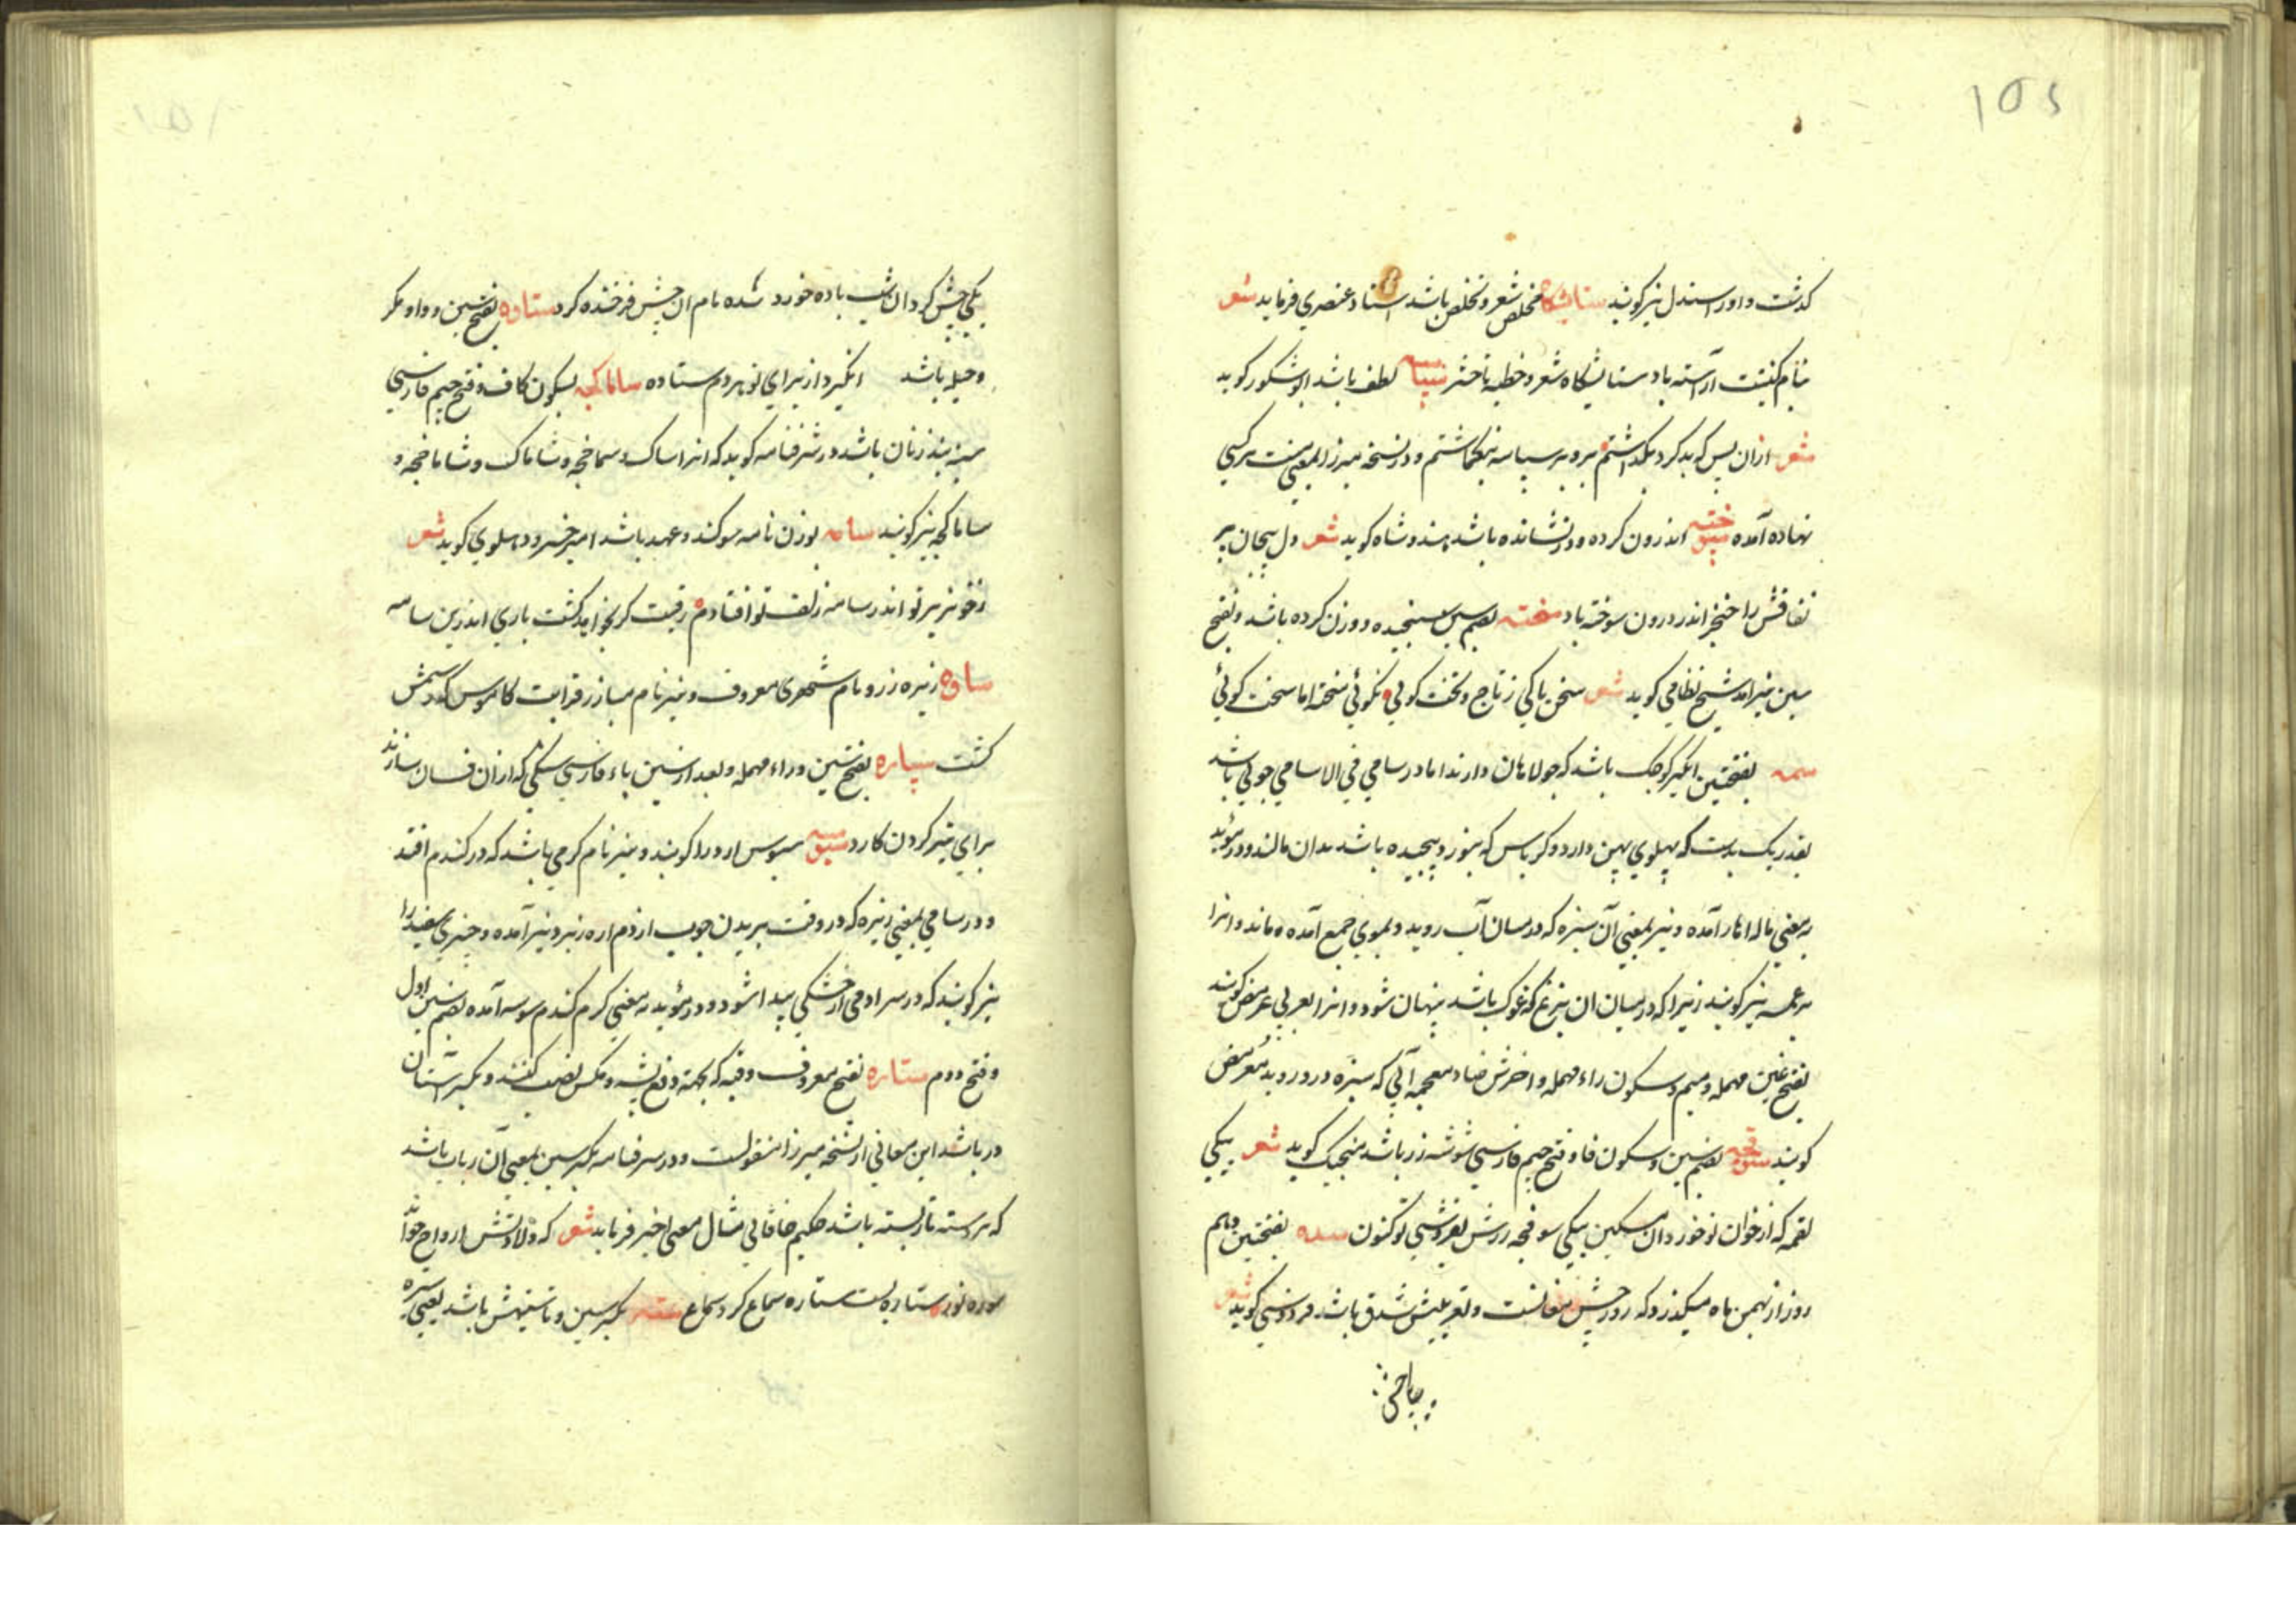 ۱۵۲
گذشت و او را سندل نیز گویند ستایشگاه مخلص شعر و تخلص باشد استاد عنصری فرماید شعر
بنام کنیتت آراسته باد ستایشگاه شعر و خطبه تا حشر سپاسه لطف باشد ابوشکور گوید
شعر ازان پس که بد کرد بگذاشتم برو بر سپاسه بنگماشتم و در نسخه میرزا بمعنی منت بر کسی
نهاده آمده سپوخته اندرون کرده و در نشانده باشد هندوشاه گوید شعر دل بیجان پر
نفاقش را خنجر اندر درون سوخته باد سخته بضم سین سنجیده و وزن کرده باشد و بفتح
سین نیز آمد شیخ نظامی گوید شعر سخن تا کی ز تاج و تخت گوئی نگوئی سخته اما سخت گوئی
سمه بفتحتین انگیر کوچک باشد که جولاهان دارند اما در سامی فی الاسامی چوبی باشد
بقدر یک بدست که پهلوی پهن دارد و کرباس که بنورد پیچیده باشد بدان مالند و در مؤید
به معنی ماله اهار آمده و نیز بمعنی آن سبزه که در میان آب روید و بموی جمع آمده ماند و انرا
نیز گویند زیرا که در میان ان بزغ که غوک باشد پنهان شود و انرا بعربی عرمض گویند
بفتح عین مهمله و میم و سکون راء مهمله و اخرش ضاد معجمه آبی که سبزه در و روید معرمض
گویند سوفچه بضم سین و سکون فا و فتح جیم فارسی شوشه زر باشد منجیک گوید شعر یکی
لقمه که از خوان تو خورد ان مسکین یکی سوفچه زرش بفروشی تو کنون سده بفتحتین دهم
روز از بهمن ماه میگذرد که روز جشن مغانست و تعریبش سذق باشد فردوسی گوید شعر
یکی جشن کرد ان شب باده خورد سده نام ان جشن فرخنده کرد ستاوه بفتح سین و واو مکر
و حیله باشد انگیزد از برای تو هر دم ستاوه ساماکچه بسکون کاف و فتح جیم فارسی
سینه بند زنان باشد و در شرفنامه گوید که انرا ساماک و سماخچه و شاماک و شاماخچه و
ساماکچه نیز گویند سامه بوزن نامه سوگند و عهد باشد امیر خسرو دهلوی گوید شعر
زخونریز تو اندر سامه زلف تو افتادم رقیبت گر بخواهد کشت باری اندرین سامه
ساوه ریزه زر و نام شهری معروف و نیز نام مبارز قرابت کاموس که رستمش
کشت سپاره بفتح سین و راء مهمله و بعد از سین باء فارسی سنگی که از ان فسان سازند
برای تیز کردن کارد سبوسه سبوس ارد را گویند و نیز نام کرمی باشد که در گندم افتد
و در سامی بمعنی ریزه که در وقت بریدن چوب از دم اره زیر ریزد آمده و چیزی سفید را
نیز گویند که در سر ادمی از خشکی پیدا شود و در مؤید به معنی کرم گندم سوسه آمده بضم سین اول
و فتح دوم ستاره بفتح معروف و قبه که بجهة دفع پشه و مگس نصب کنند و بکسر آستان
در باشد این معانی از نسخه میرزا منقولست و در شرفنامه بکسر سین بمعنی آن رباب باشد
که بر دسته تار بسته باشد حکیم خاقانی مثال معنی اخیر فرماید شعر که ولادتش ارواح خوانده
سوره نور ستاره بست ستاره سماع کرد سماع سته بکسر سین و تا ستیهش باشد یعنی ستیزه